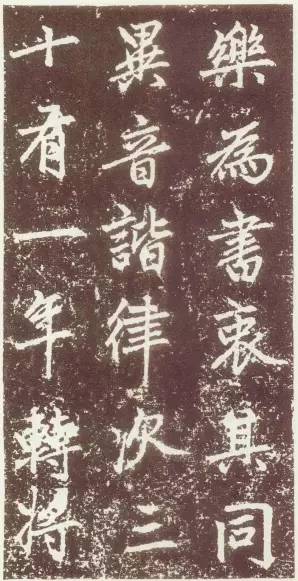 樂為書裒其同
異音諧律次三
十有一年轉將